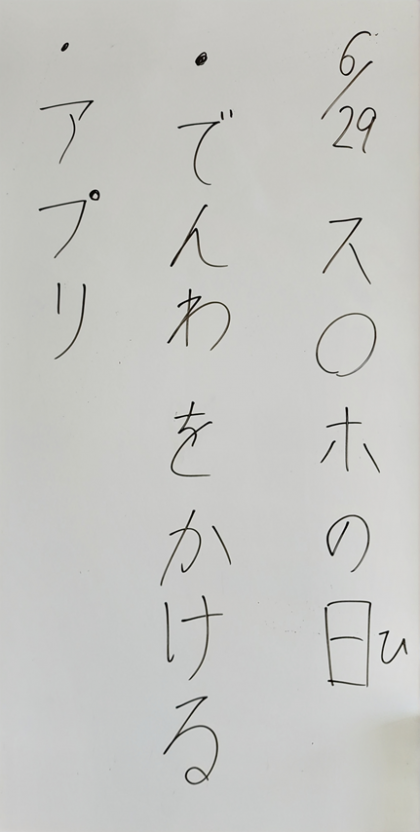 6/29 ス〇ホの日ひ
・でんわをかける
・アプリ